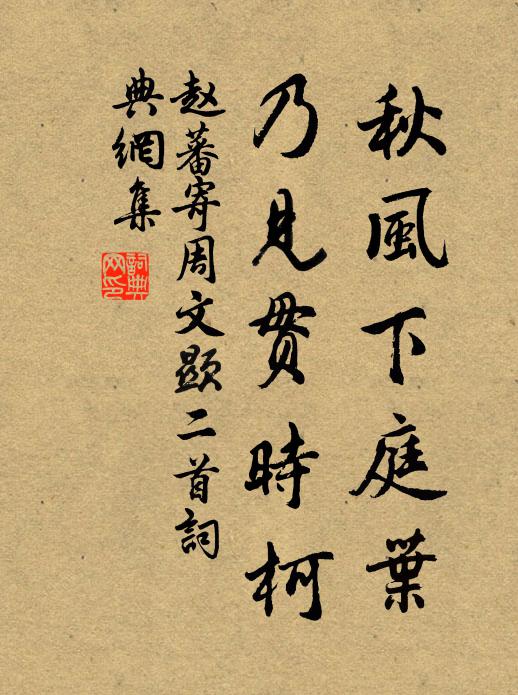 秋風下庭葉
乃見貫時柯
赵蕃寄周文顯二首詞
典網集
詞典
网印